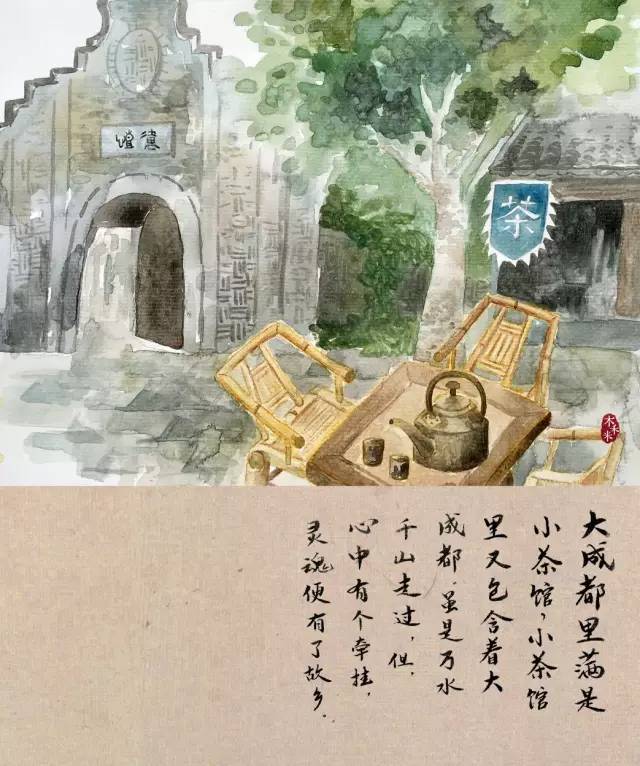 茶
大成都里满是
小茶馆,小茶馆
里又包含着大
成都.虽是万水
千山走过,但,
心中有个牵挂,
灵魂便有了故乡.